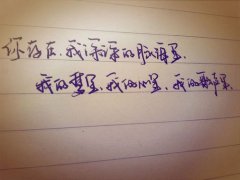 你存在,我深深的脑海里,
我的梦里,我的心里,我的歌声里